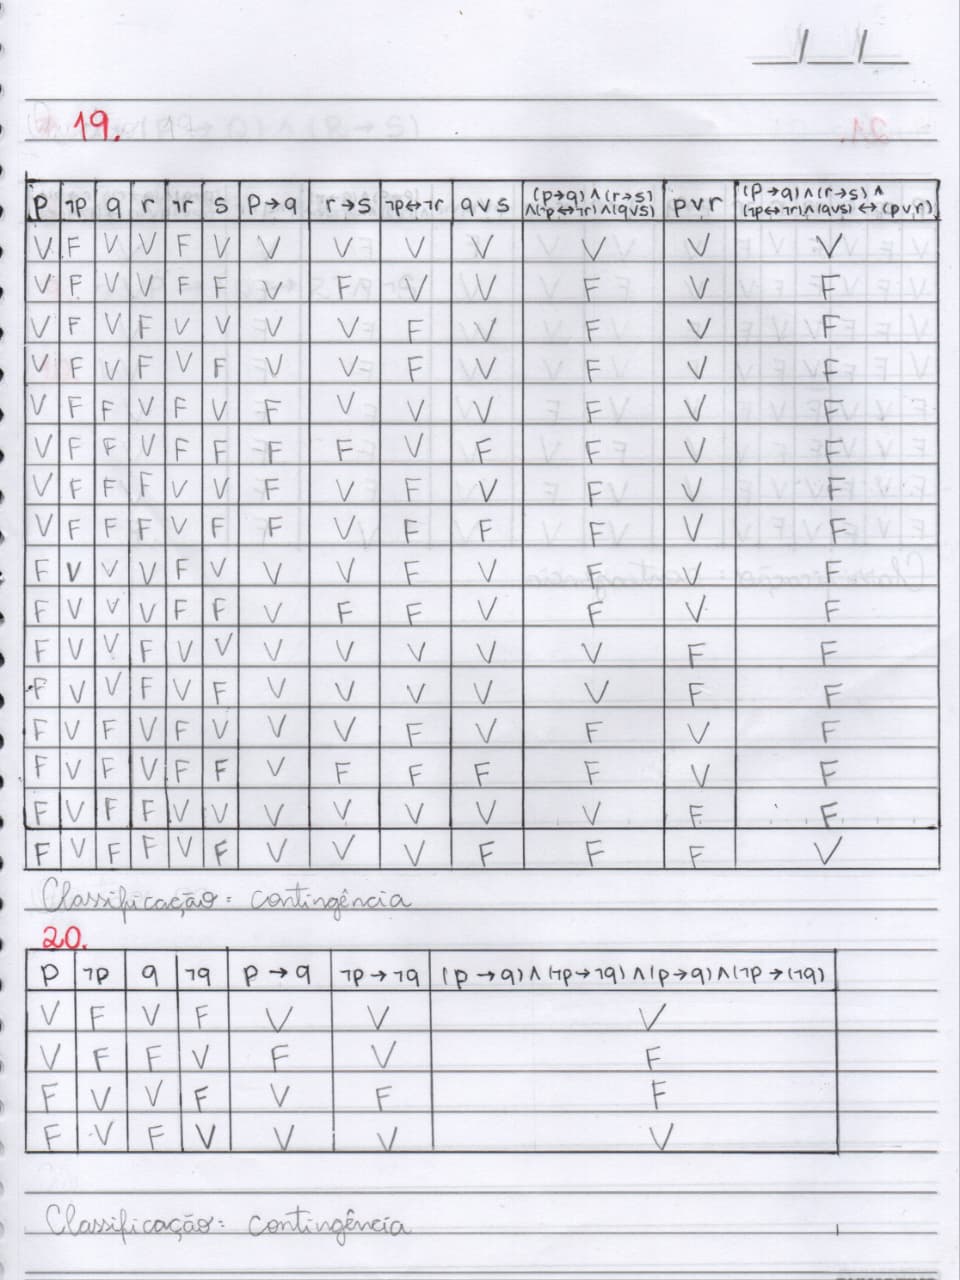 __/__/__
19.
p ¬p q r ¬r s p→q r→s ¬p↔¬r q∨s (p→q)∧(r→s)∧(¬p↔¬r)∧(q∨s) p∨r (p→q)∧(r→s)∧(¬p↔¬r)∧(q∨s)↔(p∨r)
V F V V F V V V V V V V V
V F V V F F V F V V F V F
V F V F V V V V F V F V F
V F V F V F V V F V F V F
V F F V F V F V V V F V F
V F F V F F F F V F F V F
V F F F V V F V F V F V F
V F F F V F F V F F F V F
F V V V F V V V F V F V F
F V V V F F V F F V F V F
F V V F V V V V V V V F F
F V V F V F V V V V V F F
F V F V F V V V F V F V F
F V F V F F V F F F F V F
F V F F V V V V V V V F F
F V F F V F V V V F F F V
Classificação: contingência
20.
p ¬p q ¬q p→q ¬p→¬q (p→q)∧(¬p→¬q)∧(p→q)∧(¬p→(¬q)
V F V F V V V
V F F V F V F
F V V F V F F
F V F V V V V
Classificação: contingência